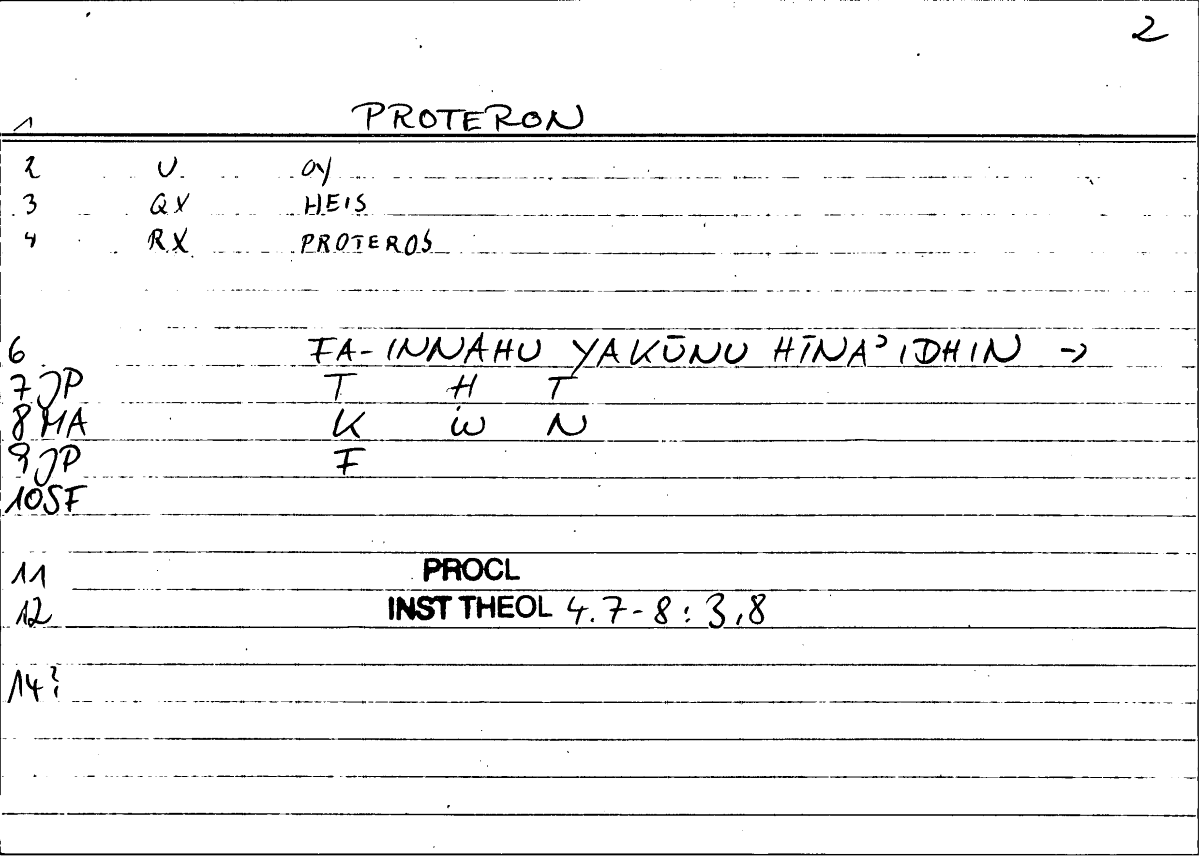 2
1 PROTERON
2 U OY
3 QX HEIS
4 RX PROTEROS
6 FA-INNAHU YAKŪNU HĪNAʾIDHIN →
7 JP T H T
8 MA K W N
9 JP F
10 SF
11 PROCL
12 INST THEOL 4.7-8:3,8
14?